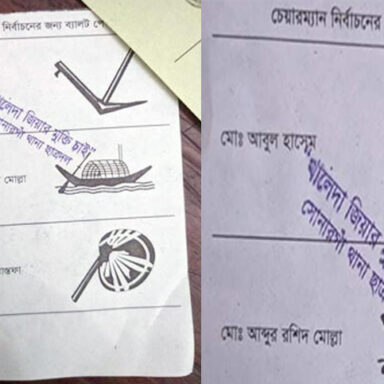 নির্বাচনের জন্য ব্যালট
খালেদা জিয়ার মুক্তি চাই"
সোনারগাঁ থানা ছাত্রদল
মোল্লা
চেয়ারম্যান নির্বাচনের
মোঃ আবুল হাসেম
"খালেদা জিয়ার
সোনারগাঁ থানা ছাত্রদল
মোঃ আব্দুর রশিদ মোল্লা